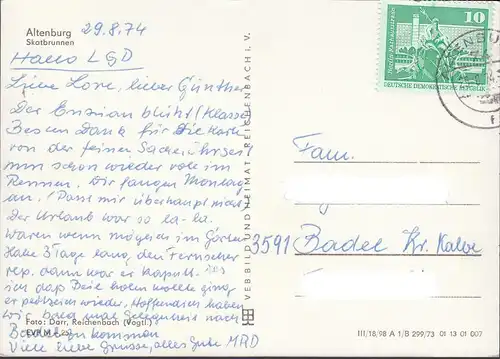 Altenburg
Skatbrunnen
29.8.74
Hallo LGD
Liebe Lore, lieber Günther
Der Enzian blüht! Klasse
Besten Dank für Die Karte
von der feiner Sache. Ihr seit
nun schon wieder voll im
Rennen. Wir fangen Montag
an! Passt mir überhaupt nicht
Der Urlaub war so la-la.
Waren wenn möglich im Garten
Habe 3 Tage lang den Fernseher
rep. dann war er kaputt. Als
ich das Beil holen wollte ging
er wieder. Hoffendlich haben
wir bald mal Gelegenheit nach
Badel zu kommen
Viele liebe Grüsse, alles Gute MRD
Foto: Darr, Reichenbach (Vogtl.)
EVP M 0,25
VEB BILD UND HEIMAT REICHENBACH I. V.
10
DEUTSCHE DEMOKRATISCHE REPUBLIK
Fam.
3591 Badel Kr. Kalbe
III/18/98 A 1/B 299/73 01 13 01 007